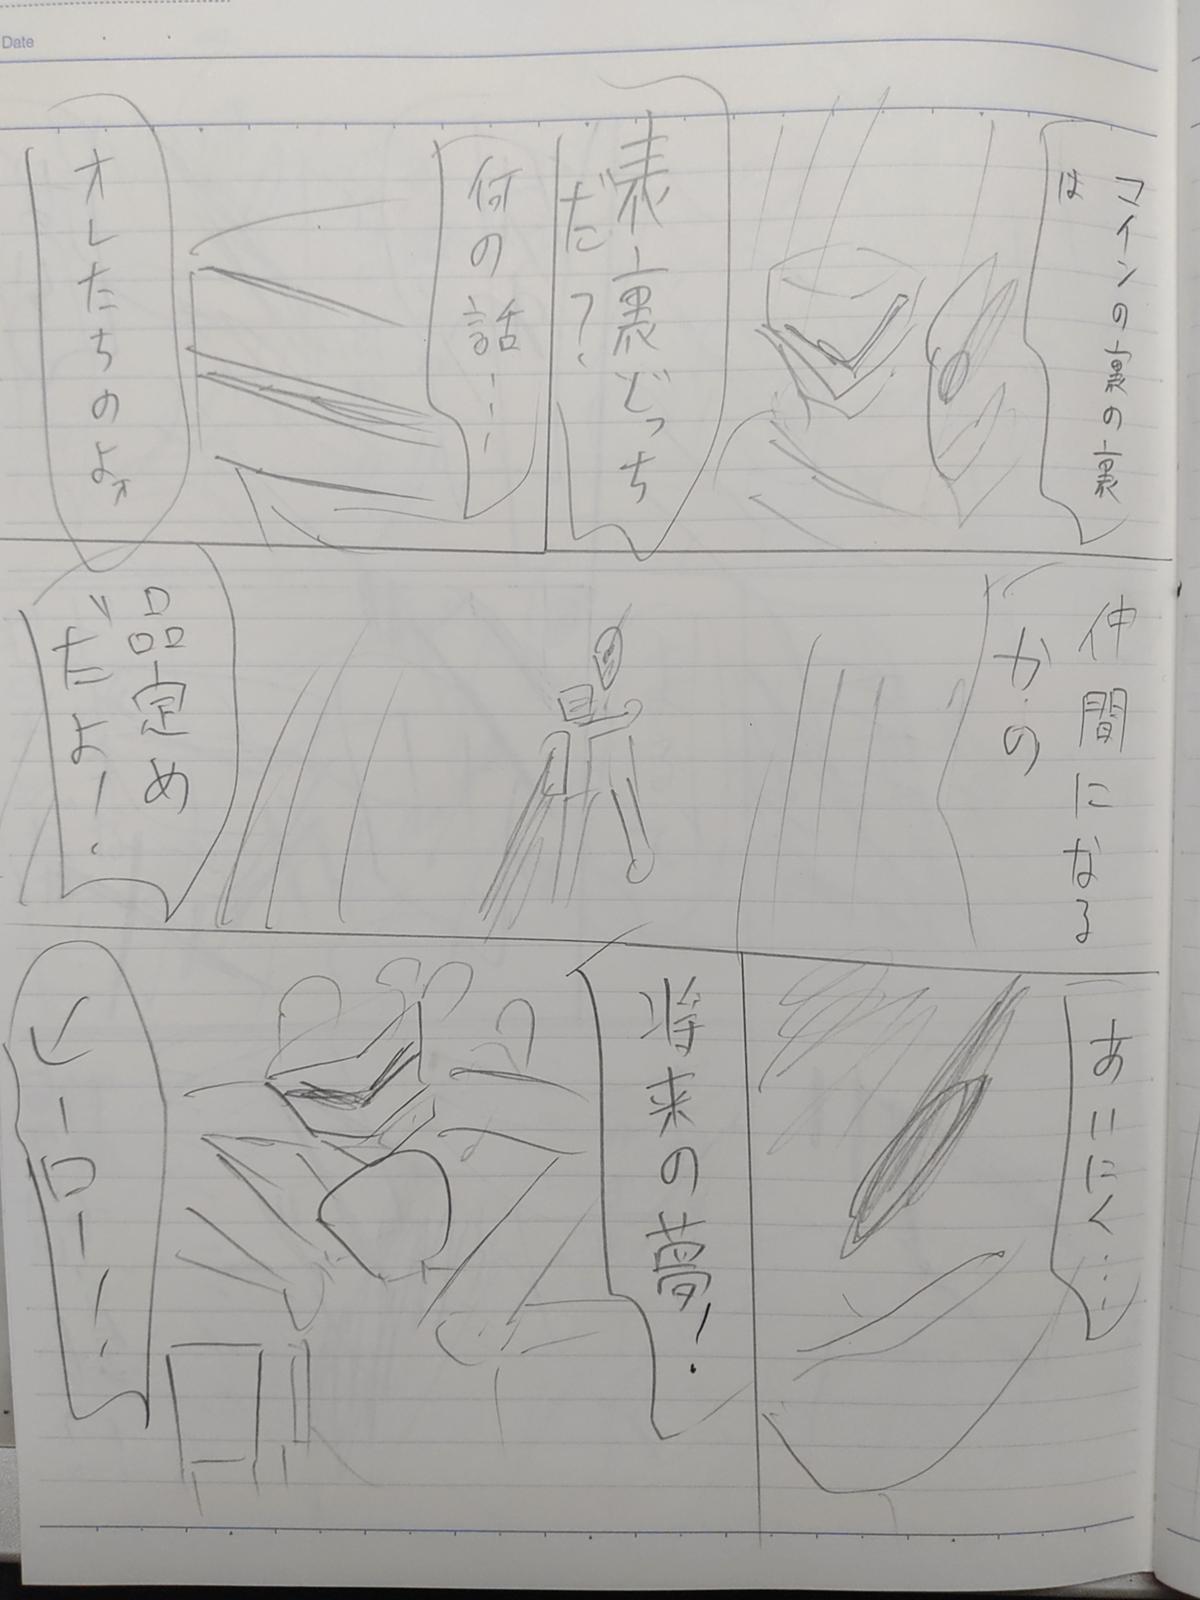 Date
コインの裏の裏
は
表と裏どっち
だ?
何の話…
オレたちのよ
仲間になる
かの
品定め
だよ!
あいにく…
将来の夢!
ヒーロー!